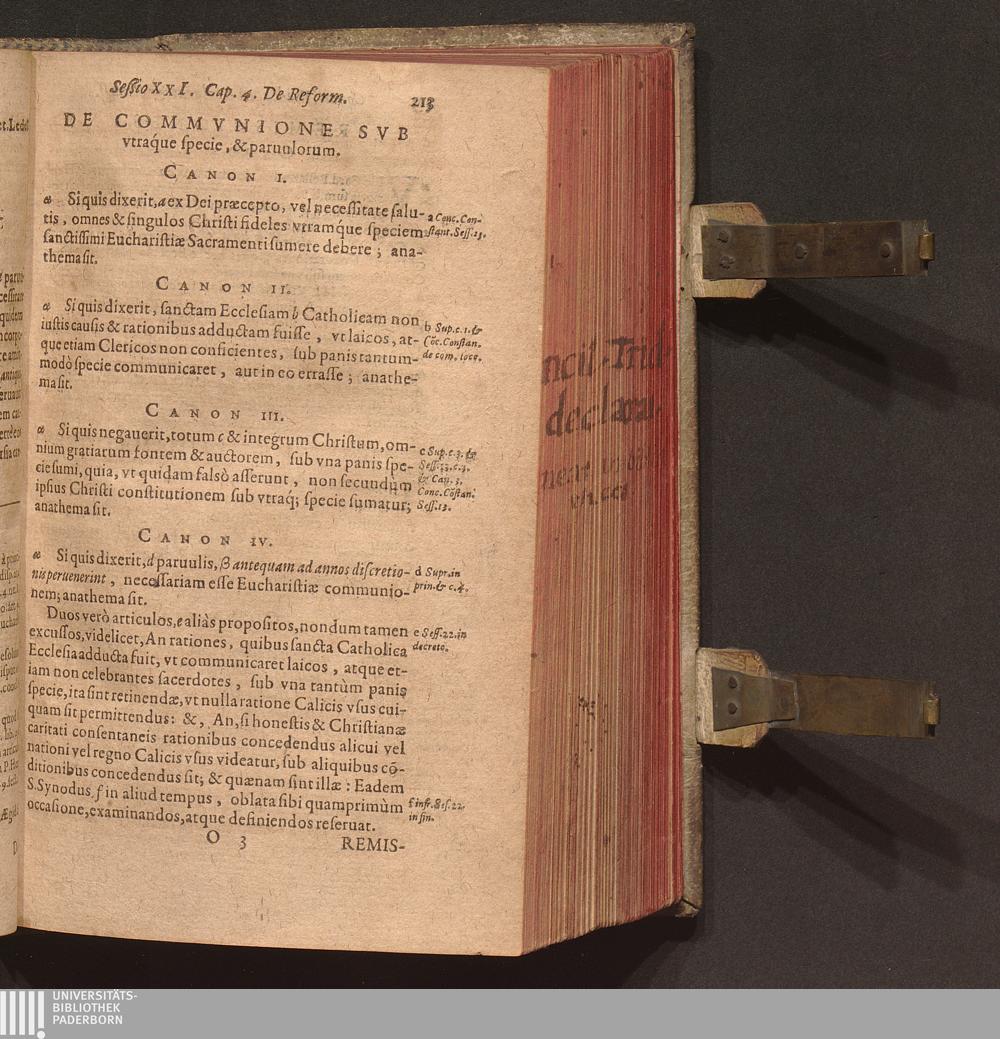 Seſſio XXI. Cap. 4. De Reform. 213
DE COMMVNIONE SVB
vtraq́ue ſpecie, & paruulorum.
CANON I.
Si quis dixerit, a ex Dei præcepto, vel neceſſitate ſalu-
tis, omnes & ſingulos Chriſti fideles vtramq́ue ſpeciem
ſanctiſſimi Euchariſtiæ Sacramenti ſumere debere; ana-
thema ſit.
a Conc. Con-
ſtant. Seſſ. 13.
CANON II.
Si quis dixerit, ſanctam Eccleſiam b Catholicam non
iuſtis cauſis & rationibus adductam fuiſſe, vt laicos, at-
que etiam Clericos non conficientes, ſub panis tantum-
modò ſpecie communicaret, aut in eo erraſſe; anathe-
ma ſit.
b Sup. c. 1. &
Cōc. Conſtan.
de com. loco.
CANON III.
Si quis negauerit, totum c & integrum Chriſtum, om-
nium gratiarum fontem & auctorem, ſub vna panis ſpe-
cie ſumi, quia, vt quidam falsò aſſerunt, non ſecundum
ipſius Chriſti conſtitutionem ſub vtraq; ſpecie ſumatur;
anathema ſit.
c Sup. c. 3. &
Seſſ. 13. c. 3.
& Can. 3.
Conc. Cōſtan.
Seſſ. 13.
CANON IV.
Si quis dixerit, d paruulis, β antequam ad annos diſcretio-
nis peruenerint, neceſſariam eſſe Euchariſtiæ communio-
nem; anathema ſit.
d Supr. in
prin. & c. 4.
Duos verò articulos, e aliàs propoſitos, nondum tamen
excuſſos, videlicet, An rationes, quibus ſancta Catholica
Eccleſia adducta fuit, vt communicaret laicos, atque et-
iam non celebrantes ſacerdotes, ſub vna tantùm panis
ſpecie, ita ſint retinendæ, vt nulla ratione Calicis vſus cui-
quam ſit permittendus: &, An, ſi honeſtis & Chriſtianæ
caritati conſentaneis rationibus concedendus alicui vel
nationi vel regno Calicis vſus videatur, ſub aliquibus cō-
ditionibus concedendus ſit; & quænam ſint illæ: Eadem
S. Synodus, f in aliud tempus, oblata ſibi quamprimùm
occaſione, examinandos, atque definiendos reſeruat.
e Seſſ. 22. in
decreto.
f infr. Seſ. 22.
in fin.
O 3 REMIS-
ncil. Trid.
declarat.
UNIVERSITÄTS-
BIBLIOTHEK
PADERBORN